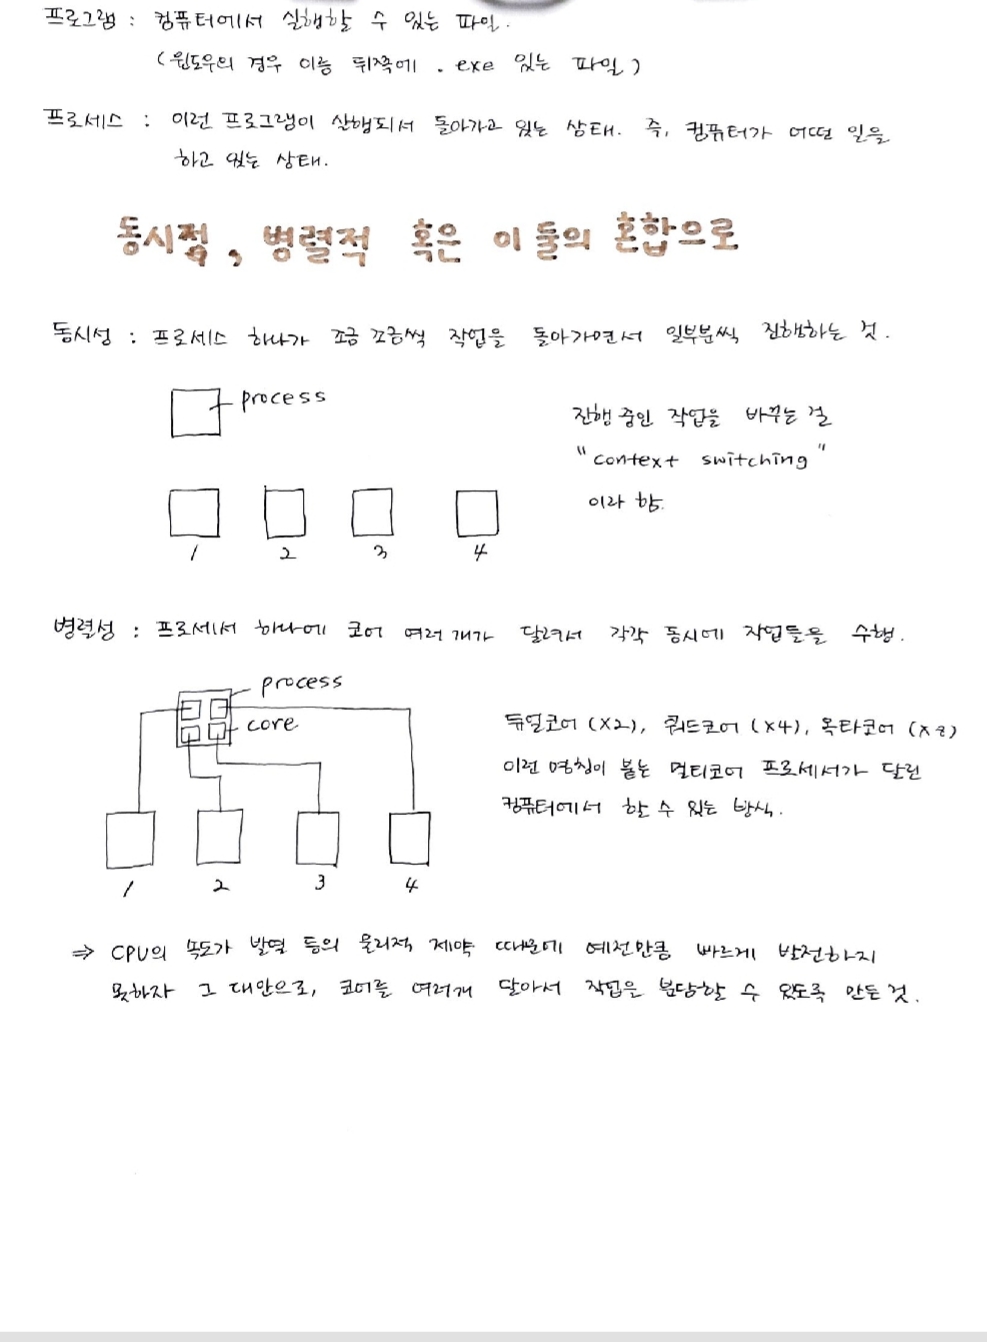 프로그램 : 컴퓨터에서 실행할 수 있는 파일.
(윈도우의 경우 이름 뒤쪽에 .exe 있는 파일)
프로세스 : 이런 프로그램이 실행되서 돌아가고 있는 상태. 즉, 컴퓨터가 어떤 일을
하고 있는 상태.
동시적, 병렬적 혹은 이 둘의 혼합으로
동시성 : 프로세스 하나가 조금 조금씩 작업을 돌아가면서 일부분씩 진행하는 것.
process
진행 중인 작업을 바꾸는 걸
"context switching"
이라 함.
1 2 3 4
병렬성 : 프로세서 하나에 코어 여러 개가 달려서 각각 동시에 작업들을 수행.
process
core
듀얼코어 (x2), 쿼드코어 (x4), 옥타코어 (x8)
이런 명칭이 붙는 멀티코어 프로세서가 달린
컴퓨터에서 할 수 있는 방식.
1 2 3 4
⇒ CPU의 속도가 발열 등의 물리적 제약 때문에 예전만큼 빠르게 발전하지
못하자 그 대안으로, 코어를 여러개 달아서 작업을 분담할 수 있도록 만든 것.